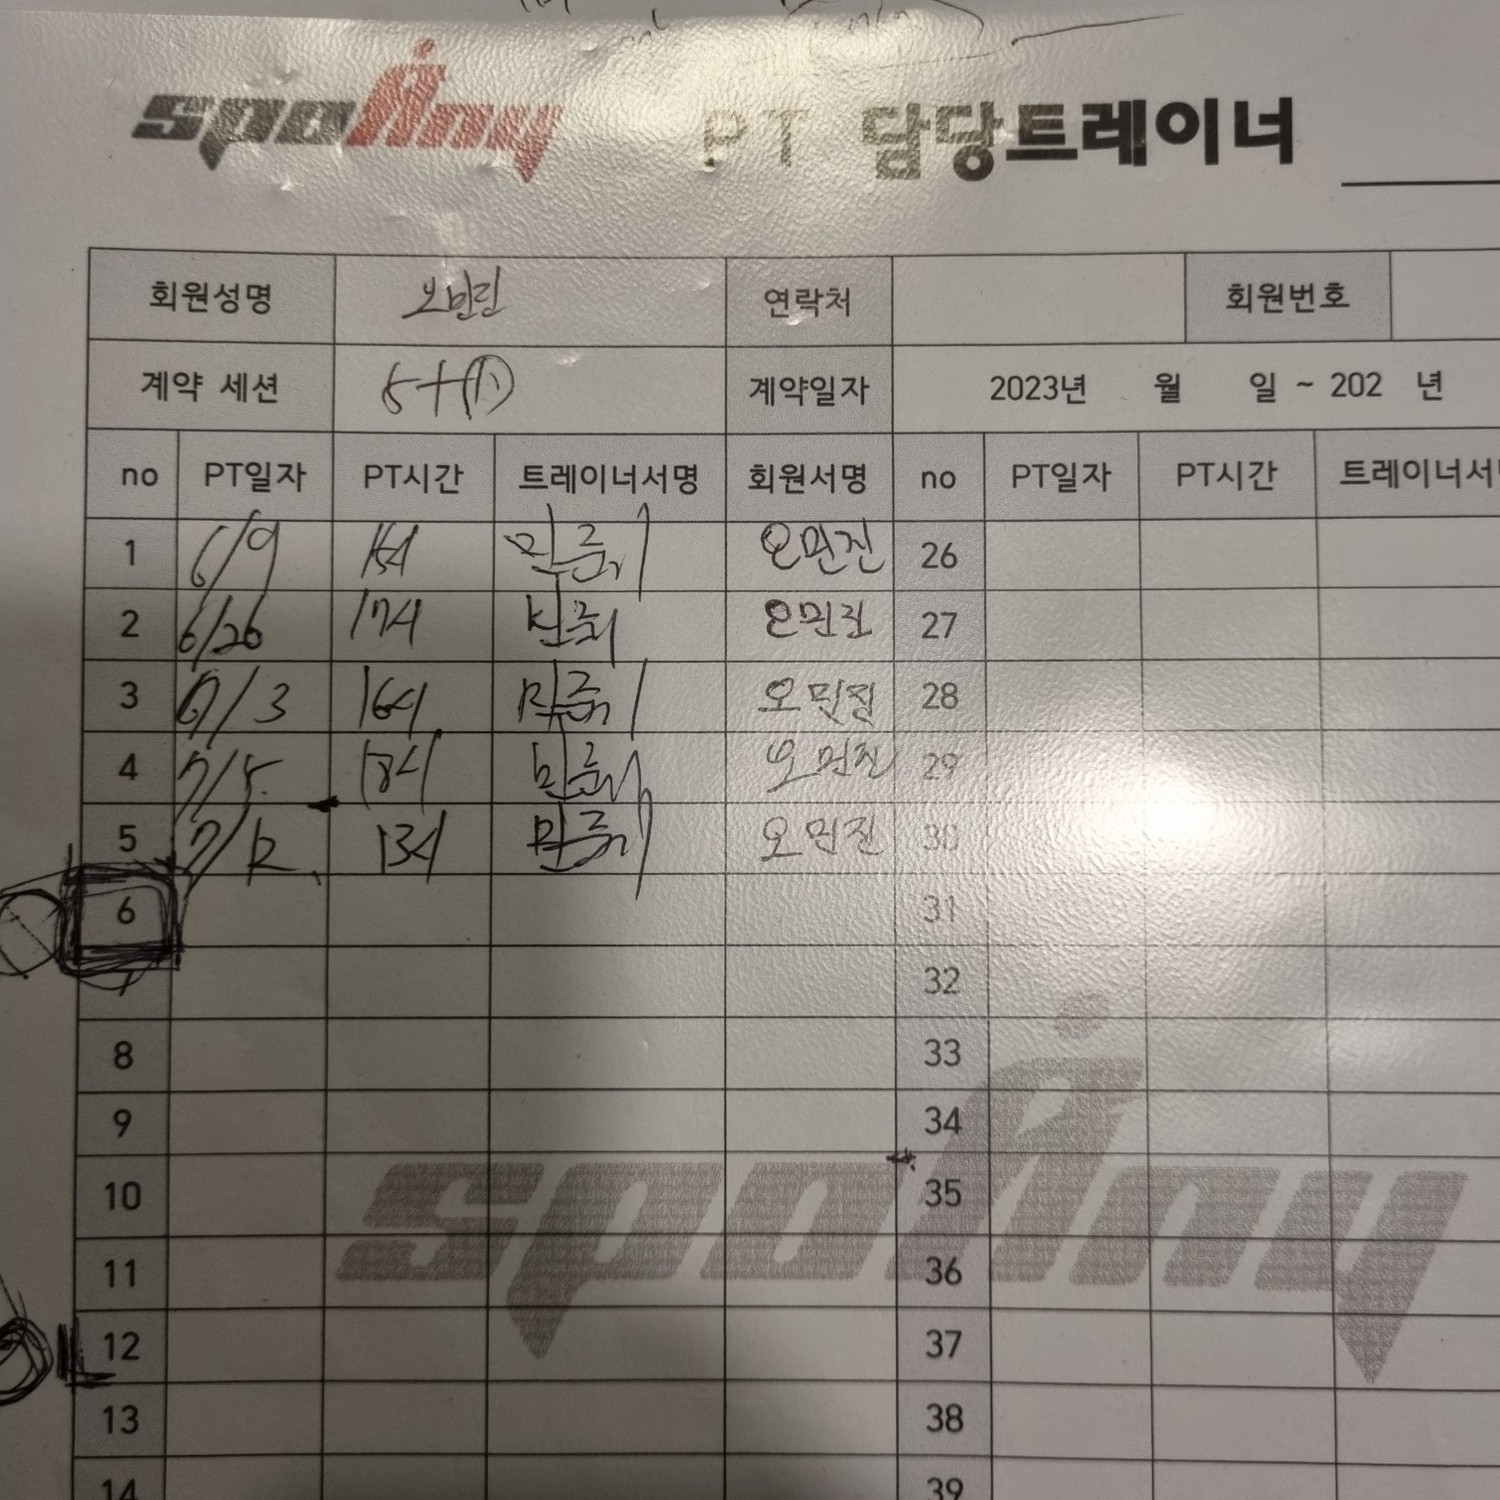 spoany PT 담당트레이너
회원성명 오민진 연락처 회원번호
계약 세션 5+① 계약일자 2023년 월 일 ~ 202 년
no PT일자 PT시간 트레이너서명 회원서명 no PT일자 PT시간 트레이너서명
1 6/9 오민진 26
2 6/26 17시 오민진 27
3 7/3 16시 오민진 28
4 7/5 18시 오민진 29
5 7/12 13시 오민진 30
6 31
7 32
8 33
9 34
10 35
11 36
12 37
13 38
14 39
spoany